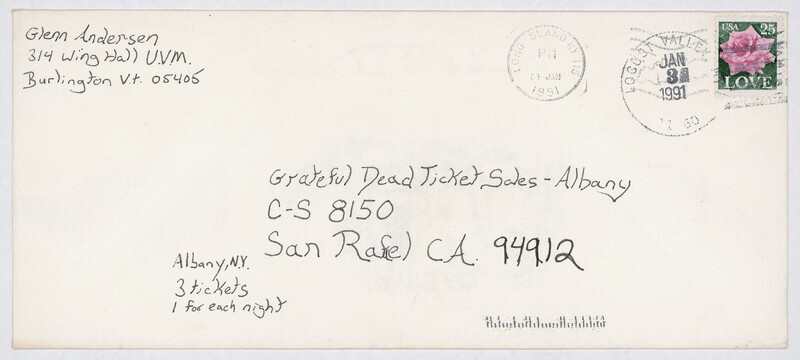 Glenn Andersen
314 Wing Hall UVM.
Burlington V.t. 05405
LONG ISLAND NY 115
PM
03 JAN
1991
LOCUST VALLEY
JAN
3
1991
USA 25
LOVE
Grateful Dead Ticket Sales - Albany
C-S 8150
San Rafel CA. 94912
Albany, N.Y.
3 tickets
1 for each night